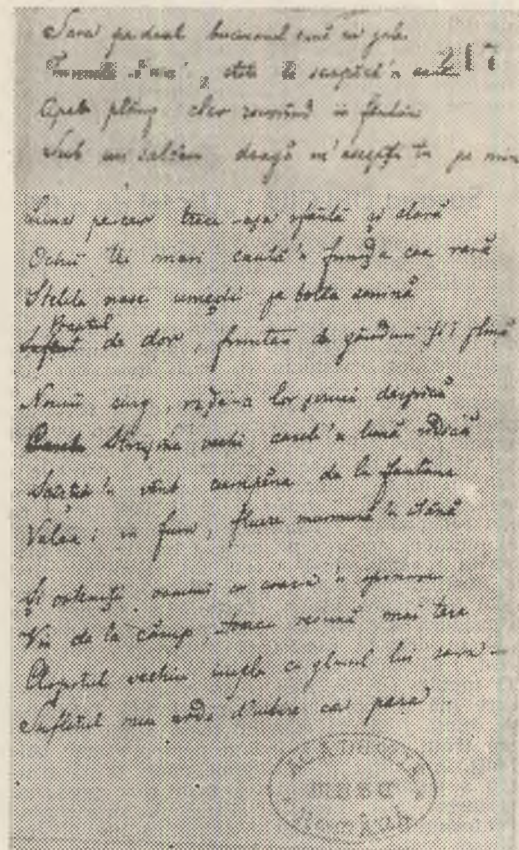 Sara pe deal buciumul sună cu jale
217
Apele plâng clar isvorând in fântâni
Sub un salcâm dragă m'aștepți tu pe mine
Luna pe cer trece așa sfântă și clară
Ochii tăi mari caută'n frunza cea rară
Stelele nasc umezi pe bolta senină
Peptul de dor, fruntea de gânduri ți'i plină
Nourii curg, raza lor șiruri despică
Streșine vechi casele'n lună ridică
Scârție'n vânt cumpăna de la fântână
Valea'i in fum, fluere murmură'n stână
Și osteniți oameni cu coasa'n spinare
Vin de la câmp, toaca resună mai tare
Clopotul vechiu imple cu glasul lui sara
Sufletul meu arde'n iubire ca para.
ACADEMIA
ROMÂNĂ